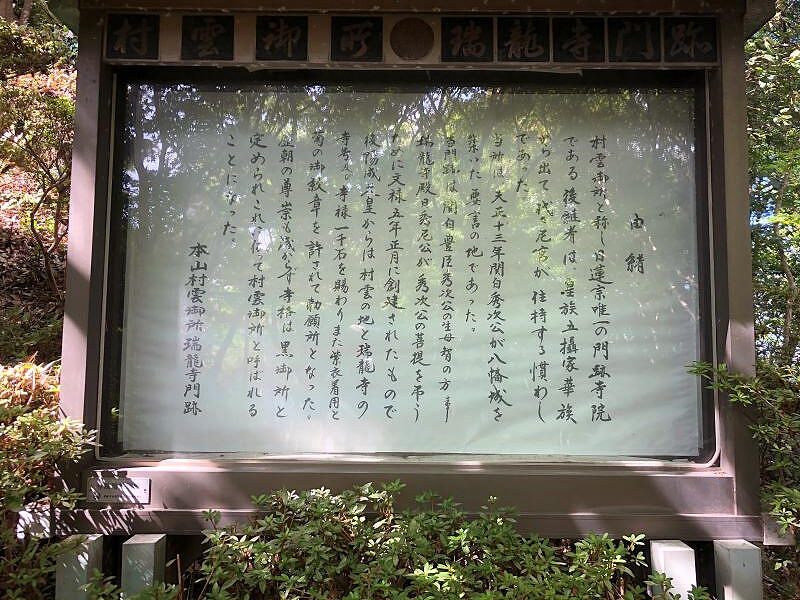 村雲御所 瑞龍寺門跡
由緒
村雲御所と称し日蓮宗唯一の門跡寺院
である後継者は、皇族五摂家華族
から出て代々尼宮が住持する慣わし
であった
当所は、天正十三年関白秀次公が八幡城を
築いた要害の地であった。
当門跡は関白豊臣秀次公の生母智の方
瑞龍寺殿日秀尼公が秀次公の菩提を弔う
ために文禄五年正月に創建されたもので
後陽成天皇からは村雲の地と瑞龍寺の
寺号及び寺禄一千石を賜わりまた紫衣着用と
菊の御紋章を許されて勅願所となった。
歴朝の尊崇も浅からず寺格は黒御所と
定められこれによって村雲御所と呼ばれる
ことになった。
本山村雲御所瑞龍寺門跡